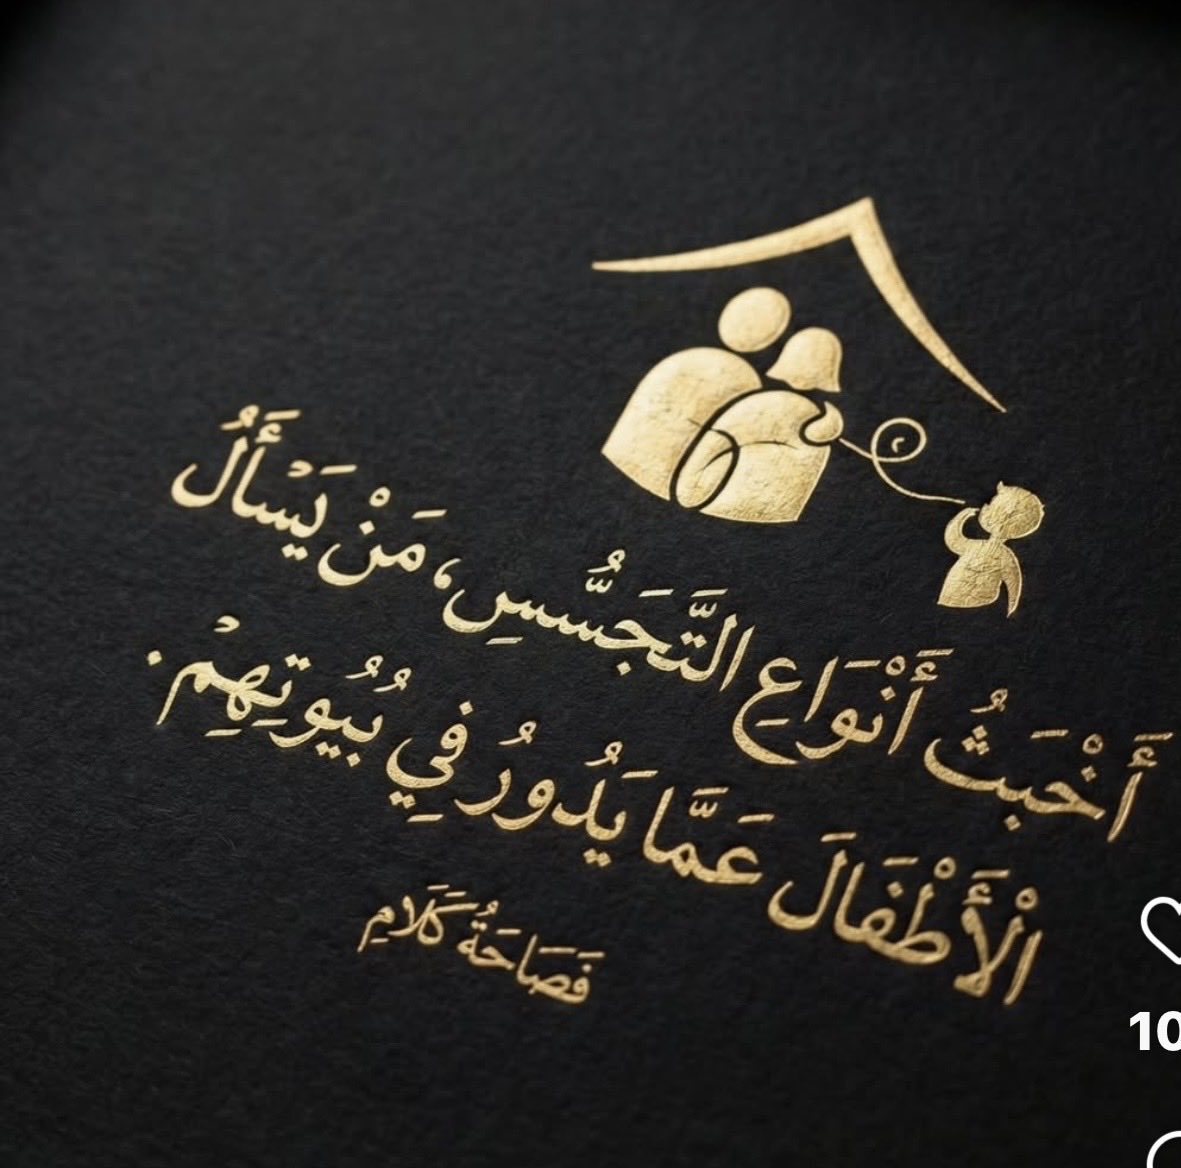 أَخْبَثُ أَنْوَاعِ التَّجَسُّسِ، مَنْ يَسْأَلُ
الْأَطْفَالَ عَمَّا يَدُورُ فِي بُيُوتِهِمْ.
فَصَاحَةُ كَلَامِ
10